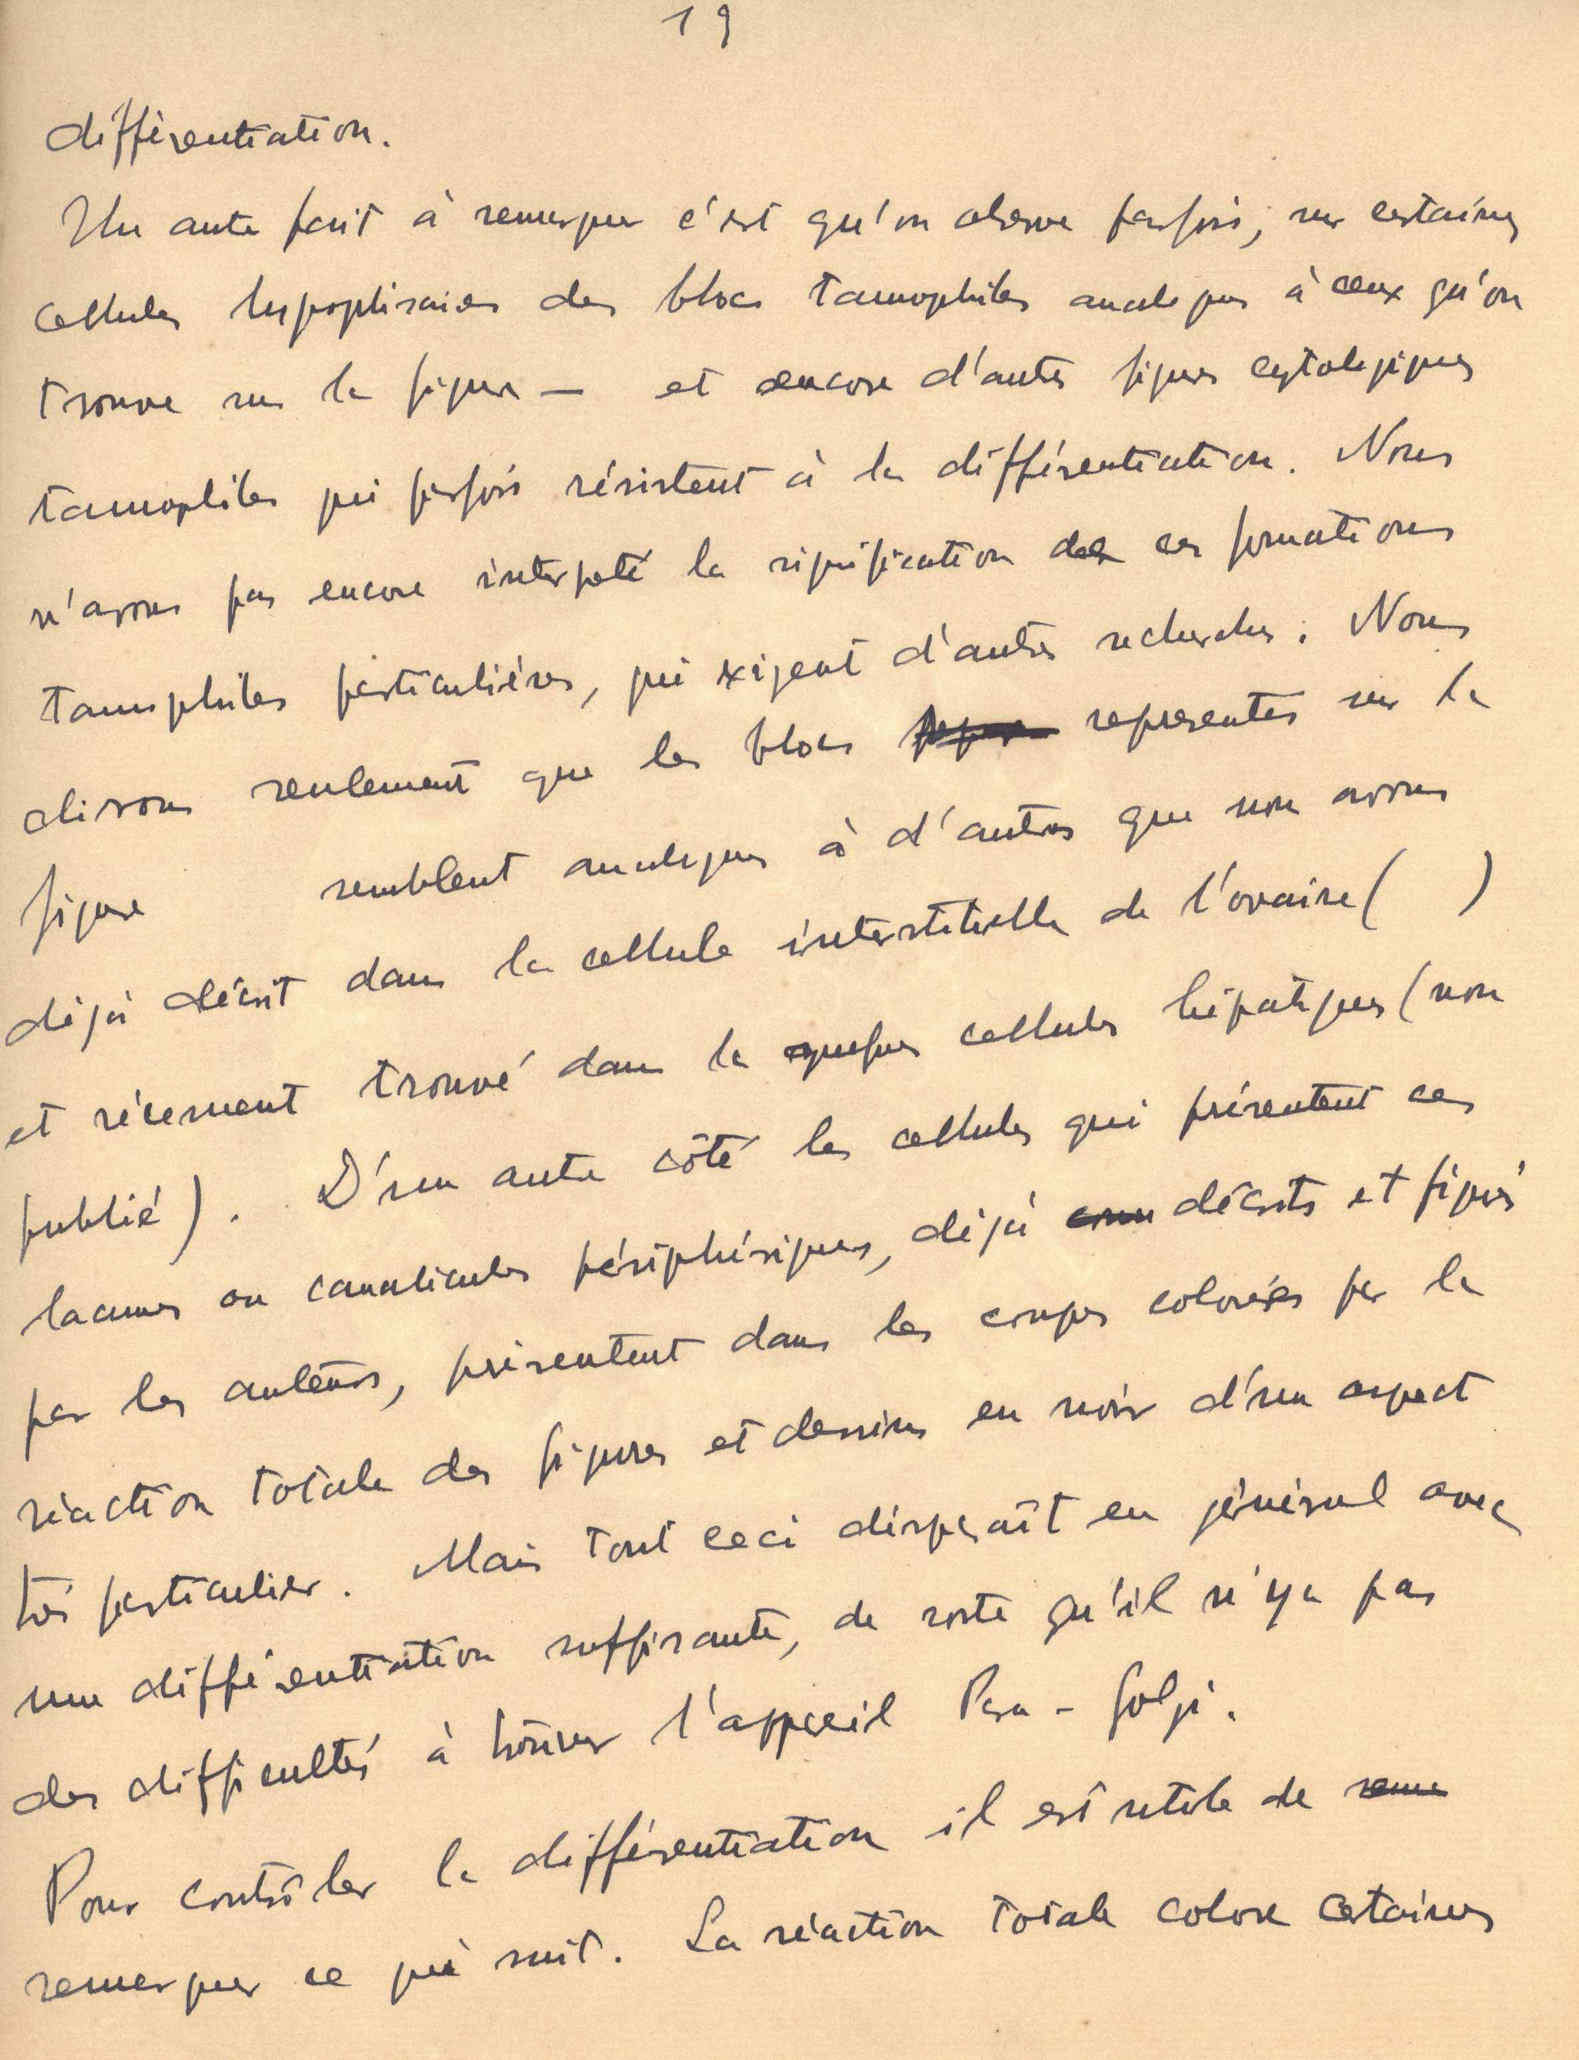 19
différentiation.
Un autre fait à remarquer c'est qu'on observe parfois, sur certaines
cellules hypophisaires des blocs tannophiles analogues à ceux qu'on
trouve sur la figure — et encore d'autres figures cytologiques
tannophiles qui parfois résistent à la différentiation. Nous
n'avons pas encore interpeté la signification de ces formations
tannophiles particulières, qui exigent d'autres recherches. Nous
disons seulement que les blocs representés sur la
figure semblent analogues à d'autres que nous avons
déjà décrit dans la cellule interstitielle de l'ovaire ( )
et récemment trouvé dans la quelques cellules hépatiques (non
publié). D'un autre côté les cellules qui présentent ces
lacunes ou canalicules périphériques, déjà décrits et figurés
par les auteurs, présentent dans les coupes colorées par la
réaction totale des figures et dessins en noir d'un aspect
très particulier. Mais tout ceci disparaît en général avec
une différentiation suffisante, de sorte qu'il n'y a pas
des difficultés à trouver l'appareil Para-Golgi.
Pour contrôler la différentiation il est utile de
remarquer ce qui suit. La réaction totale colore certaines